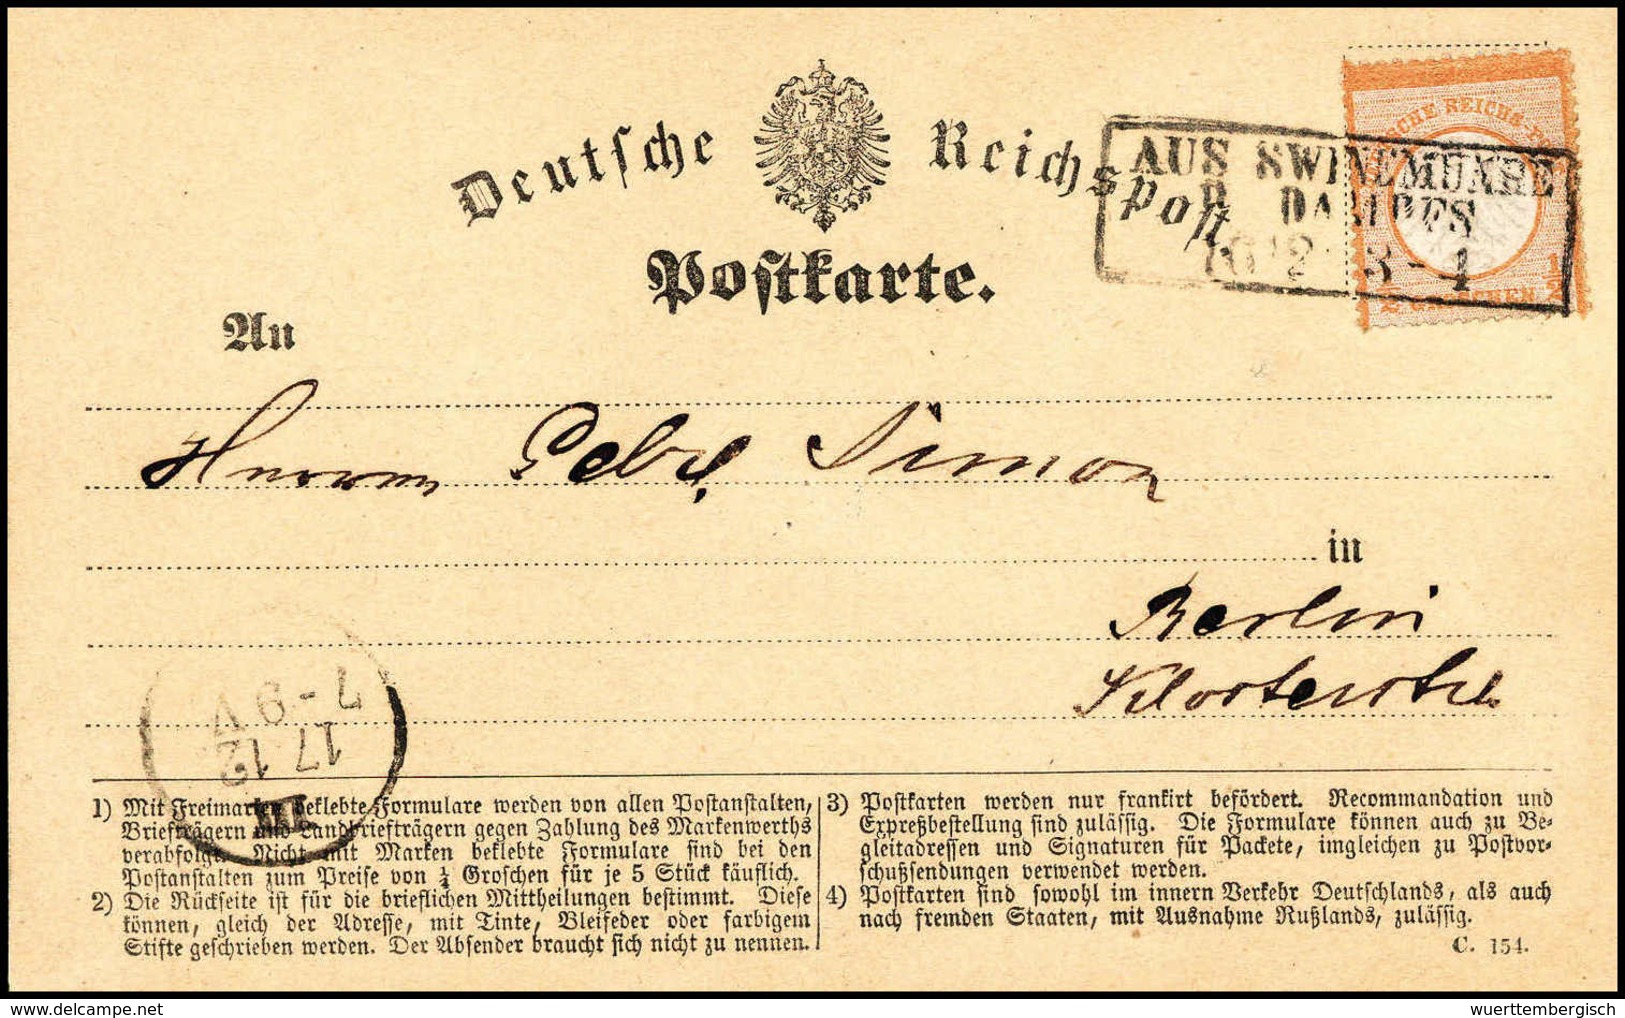 Deutsche Reichspost.
Postkarte.
AUS SWINEMÜNDE
P. DAMPFS
16 12 3-4
DEUTSCHE REICHS-POST
1/2 GROSCHEN 1/2
An
Herren Gebr. Simon
in
Berlin
Klosterstr.
7-9 V
17 12
III
1) Mit Freimarken beklebte Formulare werden von allen Postanstalten,
Briefträgern und Landbriefträgern gegen Zahlung des Markenwerths
verabfolgt. Nicht mit Marken beklebte Formulare sind bei den
Postanstalten zum Preise von ¼ Groschen für je 5 Stück käuflich.
2) Die Rückseite ist für die brieflichen Mittheilungen bestimmt. Diese
können, gleich der Adresse, mit Tinte, Bleifeder oder farbigem
Stifte geschrieben werden. Der Absender braucht sich nicht zu nennen.
3) Postkarten werden nur frankirt befördert. Recommandation und
Expreßbestellung sind zulässig. Die Formulare können auch zu Be-
gleitadressen und Signaturen für Packete, imgleichen zu Postvor-
schußsendungen verwendet werden.
4) Postkarten sind sowohl im innern Verkehr Deutschlands, als auch
nach fremden Staaten, mit Ausnahme Rußlands, zulässig.
C. 154.
wuerttembergisch